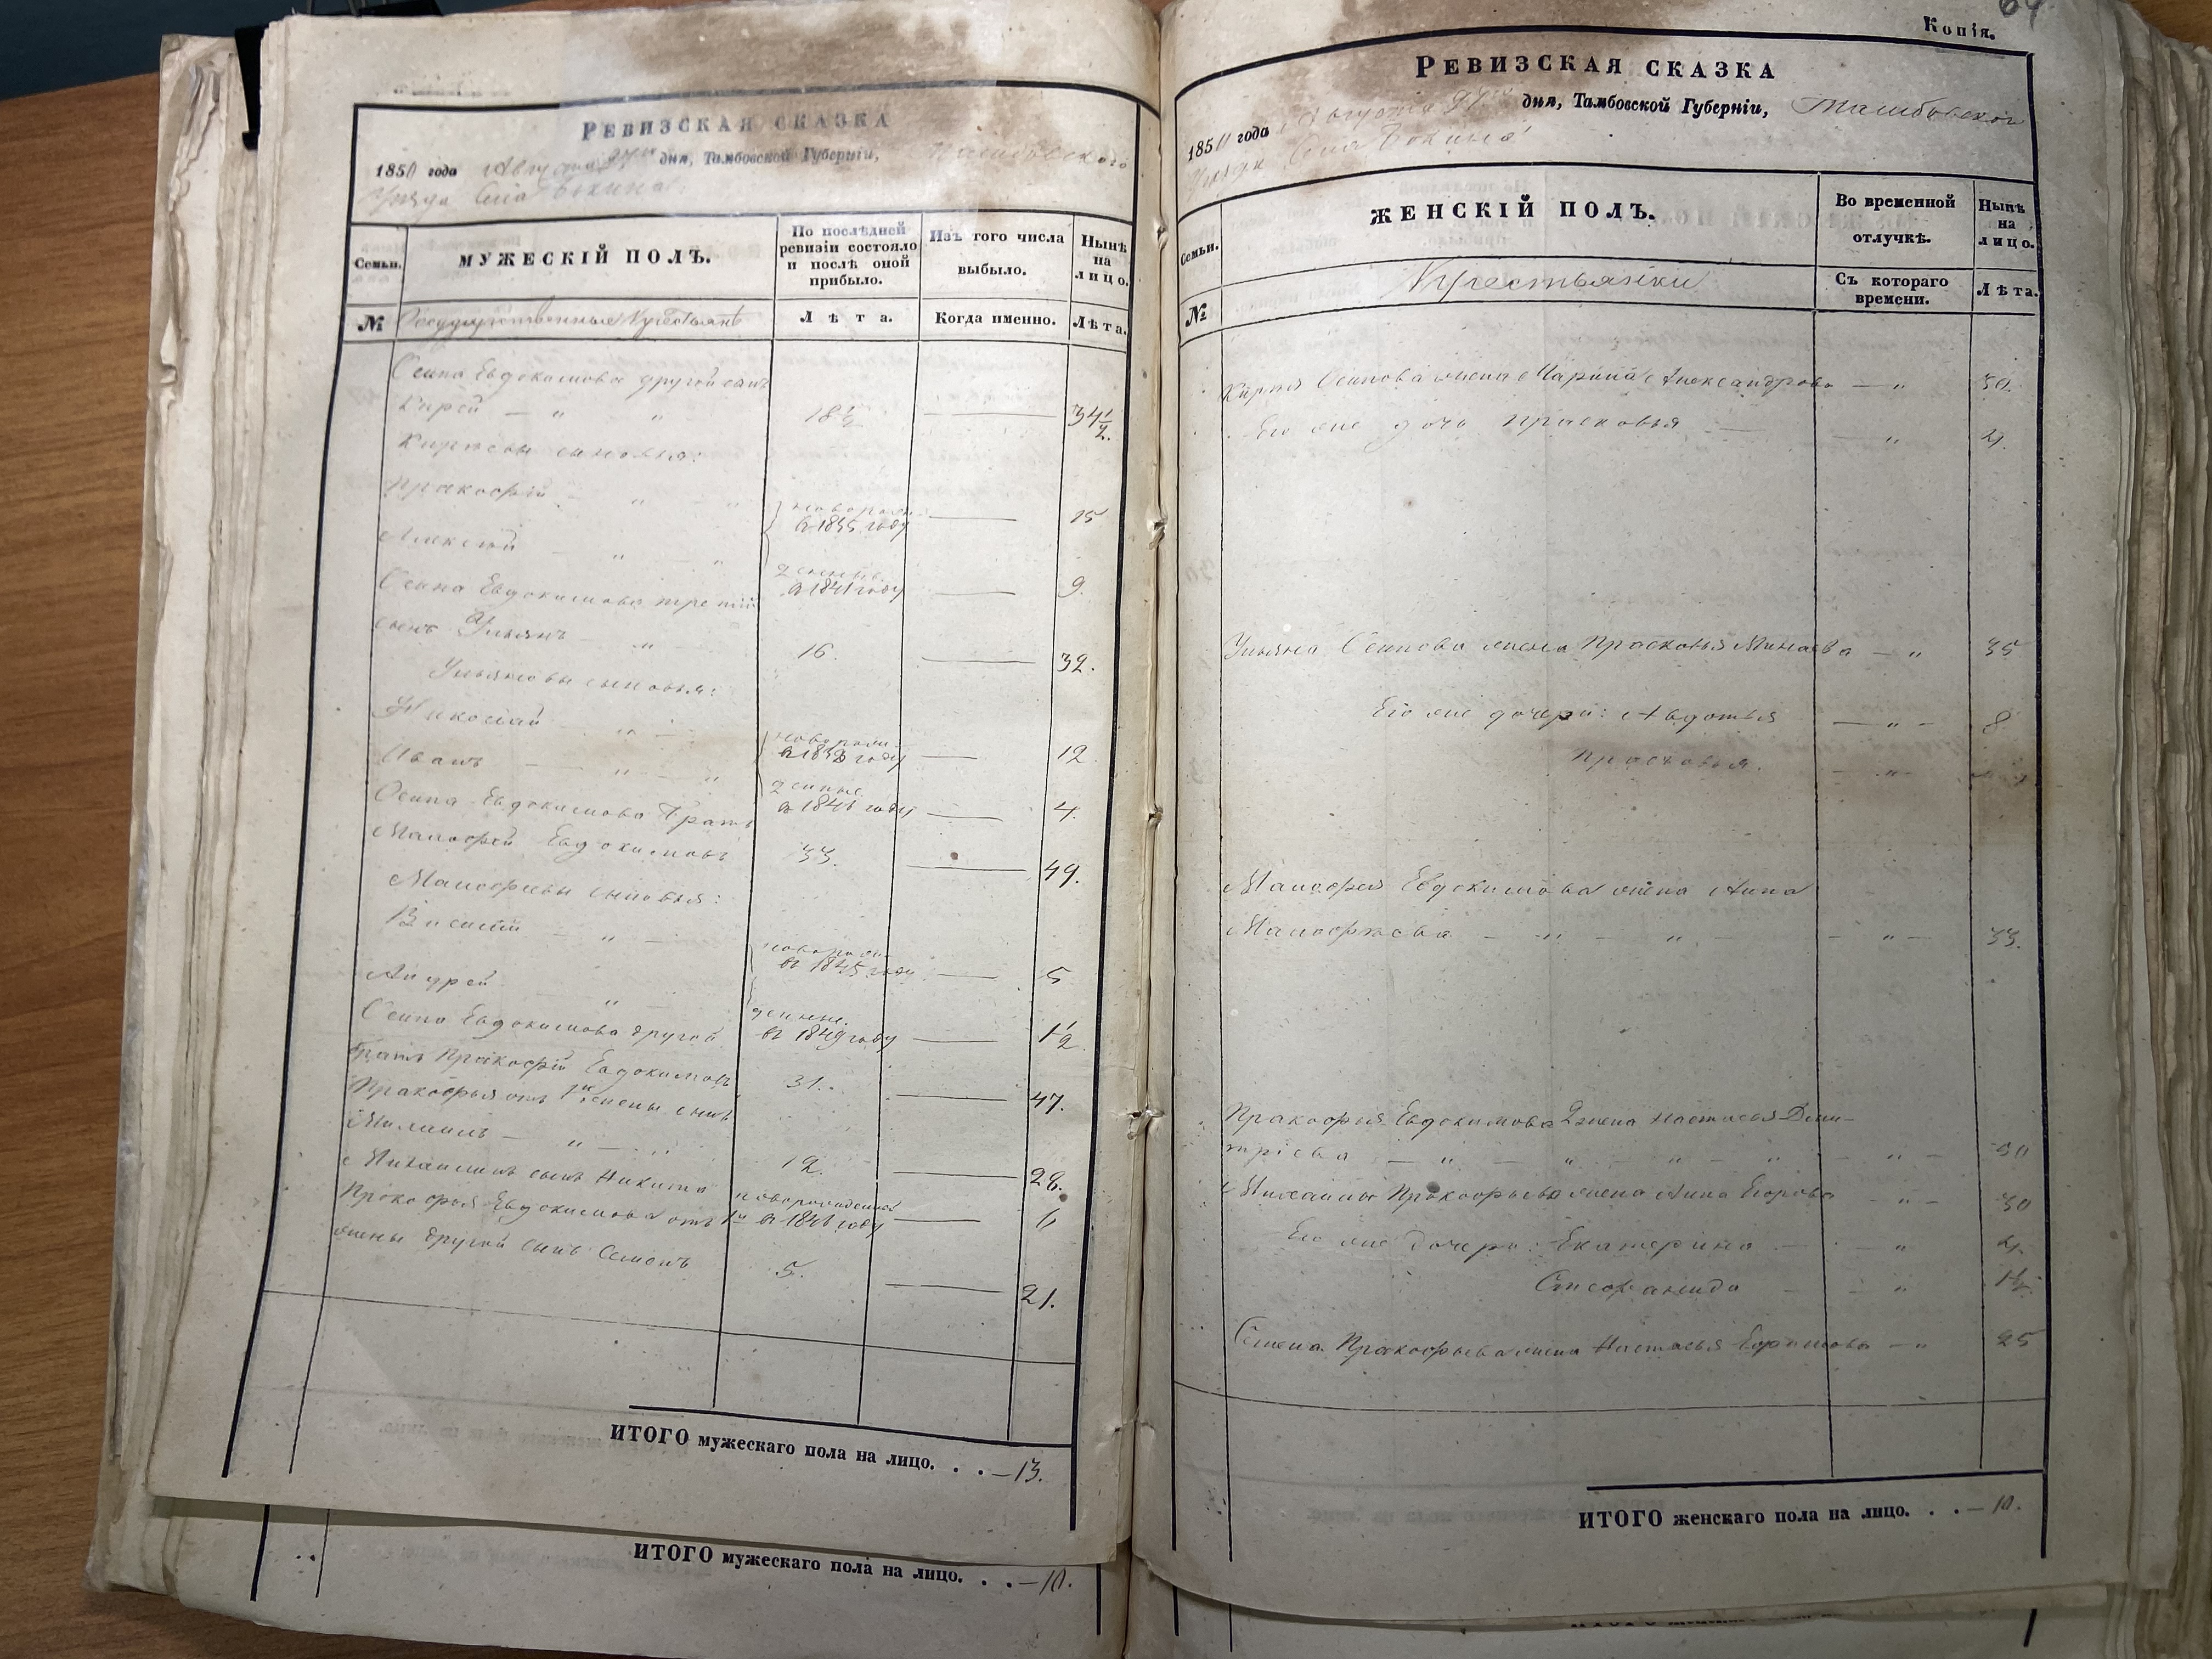 РЕВИЗСКАЯ СКАЗКА
1850 года Августа 27го дня, Тамбовской Губерніи, Тамбовского
Уезда Села Бокина
Семьи.
МУЖЕСКІЙ ПОЛЪ.
По послѣдней ревизіи состояло и послѣ оной прибыло.
Изъ того числа выбыло.
Нынѣ на лицо.
№ Государственные Крестьяне
Лѣта.
Когда именно.
Лѣта.
Осипа Евдокимова другой сынъ
Кирей — " " 18½ — 34½.
Киреевы сыновья:
Пракофій — " — " новорожд. въ 1835 году — 15
Алексей — " — " денные въ 1841 году — 9.
Осипа Евдокимова третій
сынъ Ульянъ — " 16. — 32.
Ульяновы сыновья:
Николай " новорож. въ 1838 году — 12
Иванъ — " — " денные въ 1846 году — 4.
Осипа Евдокимова братъ
Малофей Евдокимовъ 33. — 49.
Малофеевы сыновья:
Василій — " — новорож. въ 1845 году — 5
Андрей — " — денные въ 1849 году — 1½
Осипа Евдокимова другой
братъ Пракофій Евдокимовъ 31. — 47.
Пракофья отъ 1й жены сынъ
Михаилъ — " — 12. — 28.
Михаиловъ сынъ Никита новорожденный въ 1846 году —
Прокофья Евдокимова отъ 1й
жены другой сынъ Семенъ 5. — 21.
ИТОГО мужескаго пола на лицо. . . — 13.
ИТОГО мужескаго пола на лицо. . . — 10.
64
Копія.
РЕВИЗСКАЯ СКАЗКА
1850 года Августа 27го дня, Тамбовской Губерніи, Тамбовского
Уезда Села Бокина
Семьи.
ЖЕНСКІЙ ПОЛЪ.
Во временной отлучкѣ.
Нынѣ на лицо.
№
Крестьянки
Съ котораго времени.
Лѣта.
Кирея Осипова жена Марина Александрова — "
Его же дочь Прасковья — — "
Ульяна Осипова жена Прасковья Минаева — " 35
Его же дочери: Авдотья — " — 8
Прасковья. — " —
Малофея Евдокимова жена Анна
Малофеева — " — " — — " — 33.
Пракофья Евдокимова 2 жена Настасья Дми-
тріева — " — " — " — " — 30
Михаилы Прокофьева жена Анна Егорова — " — 30
Его же дочери: Екатерина — — "
Степанида — — " 1½
Семена Пракофьева жена Настасья Ефимова — " 25
ИТОГО женскаго пола на лицо. . . — 10.